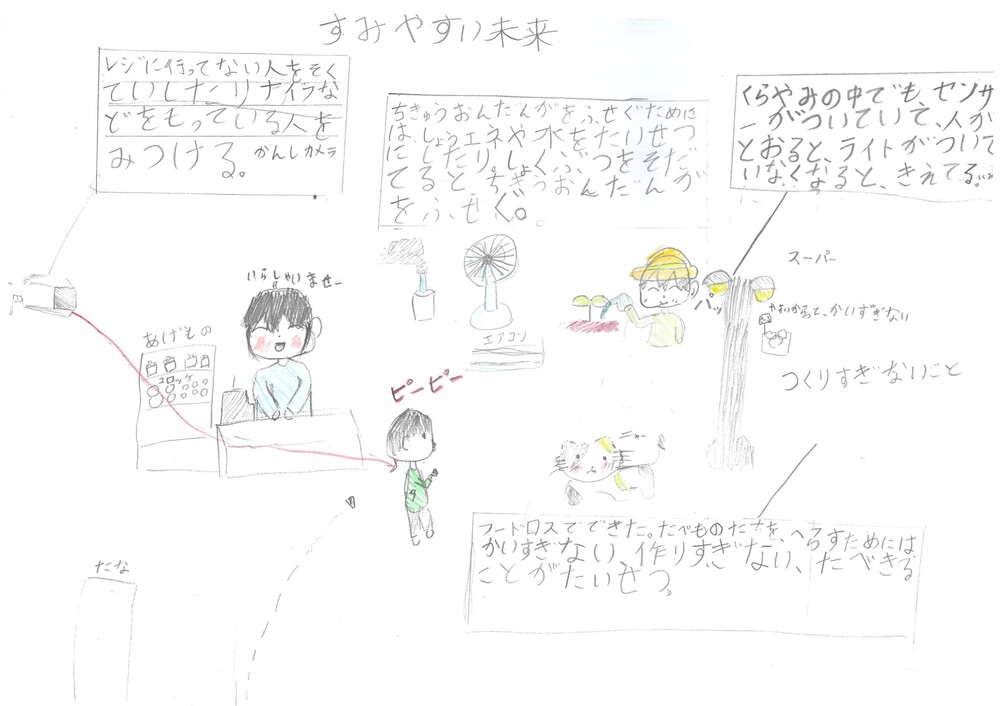 すみやすい未来
レジに行ってない人をそく
ていしたりナイフな
どをもっている人を
みつける。かんしカメラ
ちきゅうおんだんかをふせぐために
は、しょうエネや水をたいせつ
にしたり、しょくぶつをそだ
てると、ちきゅうおんだんか
をふせぐ。
くらやみの中でも、センサ
ーがついていて、人が
とおると、ライトがついて
いなくなると、きえてる。
スーパー
いらしゃいませー
パッ
やすいからって、かいすぎない
あげもの
エアコン
つくりすぎないこと
コロッケ
ピーピー
ニャー
フードロスでできた。たべものたちを、へらすためには
かいすぎない、作りすぎない、たべきる
ことがたいせつ。
たな